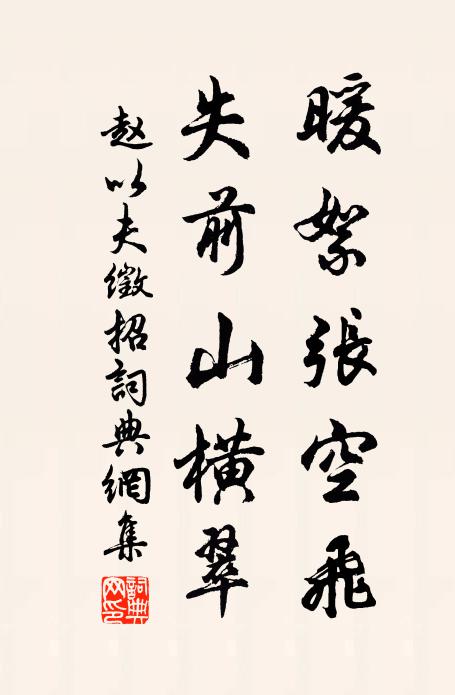 暖絮張空飛
失前山橫翠
赵以夫徵招詞典網集
詞典网印